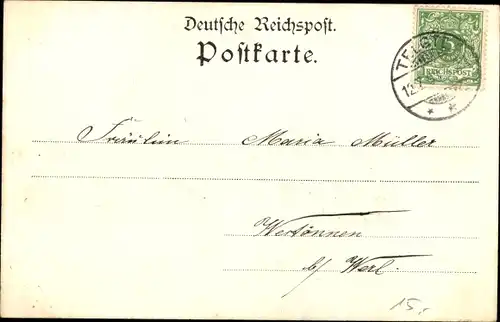 Deutsche Reichspost.
Postkarte.
5
REICHSPOST
TELGTE
12
Fräulein Maria Müller
Westönnen
b/ Werl.
15.